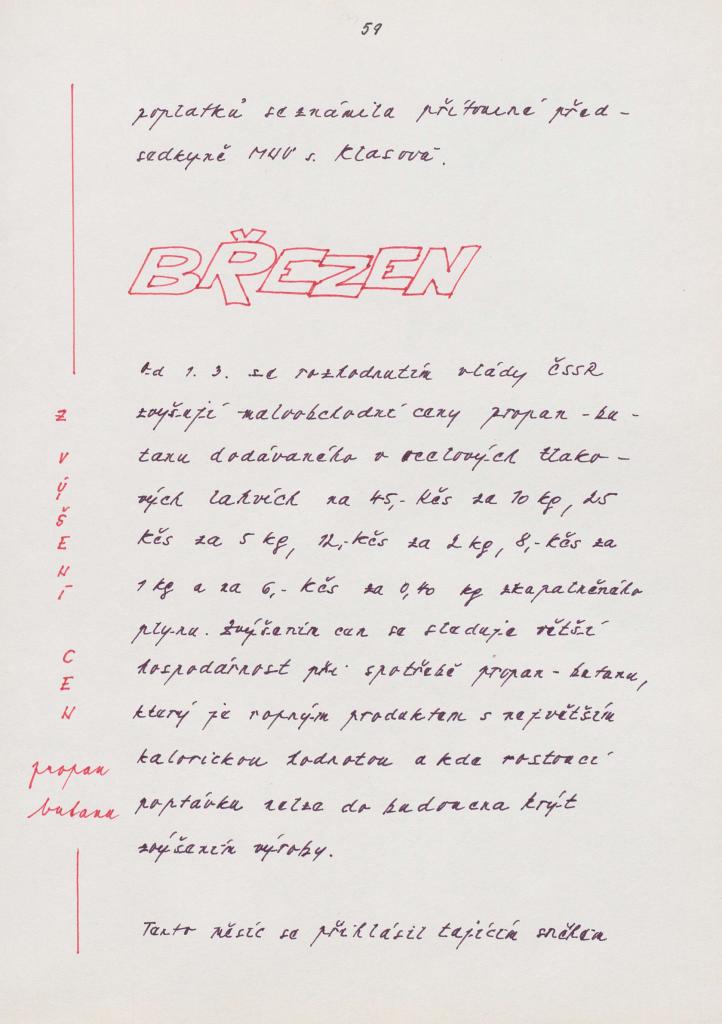 59
poplatků seznámila přítomné před-
sedkyně MNV s. Klasová.
BŘEZEN
Od 1. 3. se rozhodnutím vlády ČSSR
zvyšují maloobchodní ceny propan-bu-
tanu dodávaného v ocelových tlako-
vých lahvích na 45,- Kčs za 10 kg, 25
Kčs za 5 kg, 12,- Kčs za 2 kg, 8,- Kčs za
1 kg a na 6,- Kčs za 0,40 kg zkapalněného
plynu. Zvýšením cen se sleduje větší
hospodárnost při spotřebě propan-butanu,
který je ropným produktem s největším
kalorickou hodnotou a kde rostoucí
poptávku nelze do budoucna krýt
zvýšením výroby.
Tento měsíc se přihlásil tajícím sněhem
ZVÝŠENÍ
CEN
propan
butanu